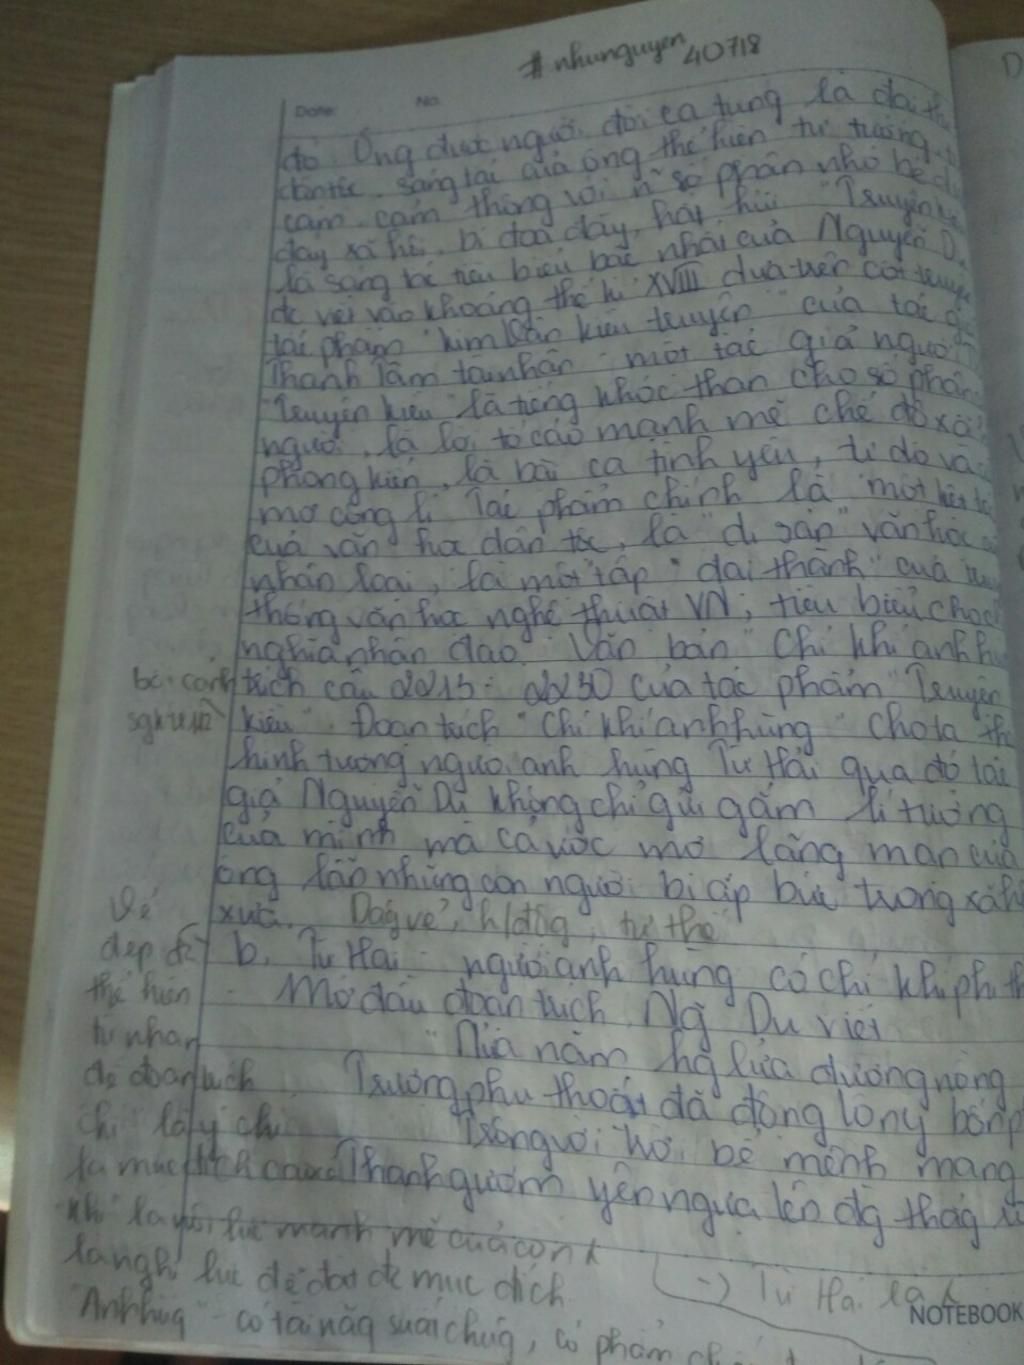 #nhunguyen 40718
Date No.
đó. Ông được người đời ca tụng là đại thi
dân tộc. sáng tác của ông thể hiện tư tưởng
cảm, cảm thông với n~ số phận nhỏ bé
đáy xã hội, bị đoạ đày, hắt hủi. "Truyện
là sáng tác tiêu biểu bậc nhất của Nguyễn D
đc viết vào khoảng thế kỉ XVIII dựa trên cốt truyện
tác phẩm "kim Vân kiều truyện" của tác giả
Thanh Tâm tài nhân một tác giả người
"Truyện kiều" là tiếng khóc than cho số phận
người, là lời tố cáo mạnh mẽ chế độ xã
phong kiến, là bài ca tình yêu, tự do và
mơ công lí. Tác phẩm chính là một kiệt
của văn học dân tộc, là "di sản" văn học
nhân loại, là một tập "đại thành" của
thống văn học nghệ thuật VN, tiêu biểu cho
nghĩa nhân đạo. Văn bản "Chí khí anh h
trích câu 2213: 2230 của tác phẩm "Truyện
kiều". Đoạn trích "Chí khí anh hùng" cho ta th
hình tượng người anh hùng Từ Hải qua đó tác
giả Nguyễn Du không chỉ gửi gắm lí tưởng
của mình mà cả ước mơ lãng mạn của
ông lão những con người bị áp bức trong xã h
xưa. Dáng vẻ, h/động, tư thế
b. Từ Hải - người anh hùng có chí khí phi th
- Mở đầu đoạn trích Ng~ Du viết
"Nửa năm hg lửa đương nồng
Trượng phu thoắt đã động lòng bốn p
Trông vời trời bể mênh mang
Thanh gươm yên ngựa lên đg thẳng
Vẻ
đẹp đc
thể hiện
từ nhan
đề đoạn trích
chí là ý chí
là mục đích cao cả
khí là lực mạnh mẽ của con
là nghị lực để đạt đc mục đích
"Anh hùg" - có tài năg sức chúg, có phẩm
-> Từ Hải là
NOTEBOOK